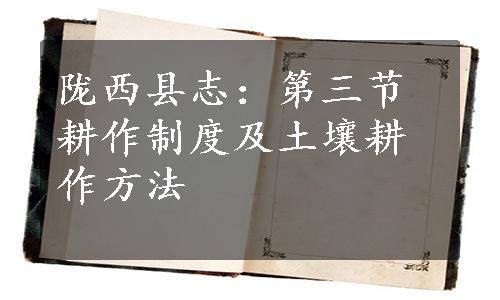 陇西县志：第三节
耕作制度及土壤耕
作方法